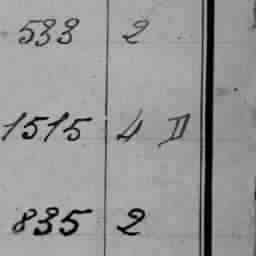 533 2
1515 4 D
835 2